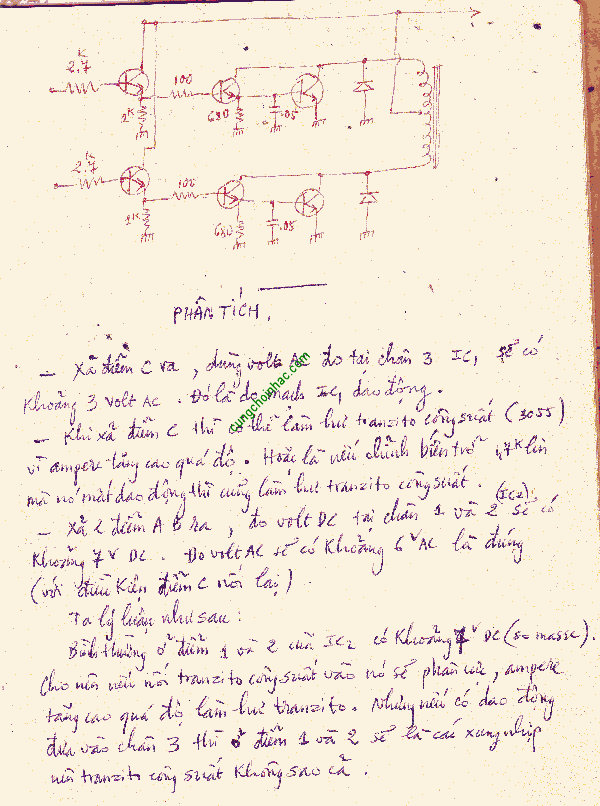 K
2.7
100
1K
680
.05
K
2.7
100
1K
680
.05
PHÂN TÍCH.
cungchoinhac.com
– Xả điểm C ra, dùng volt AC đo tại chân 3 IC, sẽ có
Khoảng 3 volt AC. Đó là do mạch IC1 dao động.
– Khi xả điểm C thì có thể làm hư tranzito công suất (3055)
vì ampere tăng cao quá độ. Hoặc là nếu chỉnh biến trở 47K lên
mà nó mất dao động thì cũng làm hư tranzito công suất.
– Xả 2 điểm A B ra, đo volt DC tại chân 1 và 2 (IC2) sẽ có
Khoảng 7V DC. Đo volt AC sẽ có Khoảng 6V AC là đúng
(với điều Kiện điểm C nối lại).
Ta lý luận như sau:
Bình thường ở điểm 1 và 2 của IC2 có Khoảng 7V DC (so masse).
Cho nên nếu nối tranzito công suất vào nó sẽ phân cực, ampere
tăng cao quá độ làm hư tranzito. Nhưng nếu có dao động
đưa vào chân 3 thì ở điểm 1 và 2 sẽ là các xung nhịp
nên tranzito công suất Không sao cả.